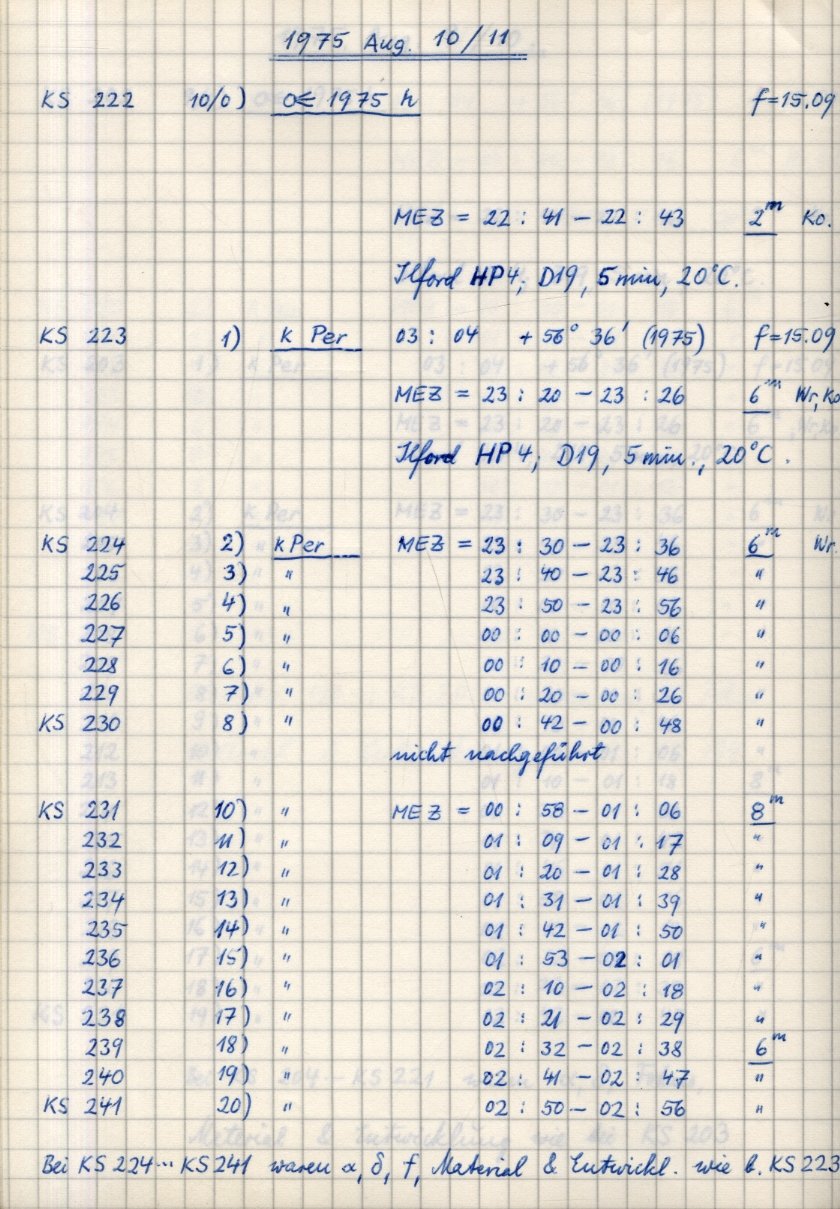 1975 Aug. 10/11
KS 222 10/0) 1975 h f=15.09
MEZ = 22 : 41 – 22 : 43 2m Ko.
Ilford HP4, D19, 5 min, 20°C.
KS 223 1) k Per 03 : 04 + 56° 36' (1975) f=15.09
MEZ = 23 : 20 – 23 : 26 6m Wr, Ko
Ilford HP4, D19, 5 min., 20°C.
KS 224 2) k Per MEZ = 23 : 30 – 23 : 36 6m Wr.
225 3) " 23 : 40 – 23 : 46 "
226 4) " 23 : 50 – 23 : 56 "
227 5) " 00 : 00 – 00 : 06 "
228 6) " 00 : 10 – 00 : 16 "
229 7) " 00 : 20 – 00 : 26 "
KS 230 8) " 00 : 42 – 00 : 48 "
nicht nachgeführt
KS 231 10) " MEZ = 00 : 58 – 01 : 06 8m
232 11) " 01 : 09 – 01 : 17 "
233 12) " 01 : 20 – 01 : 28 "
234 13) " 01 : 31 – 01 : 39 "
235 14) " 01 : 42 – 01 : 50 "
236 15) " 01 : 53 – 02 : 01 "
237 16) " 02 : 10 – 02 : 18 "
238 17) " 02 : 21 – 02 : 29 "
239 18) " 02 : 32 – 02 : 38 6m
240 19) " 02 : 41 – 02 : 47 "
KS 241 20) " 02 : 50 – 02 : 56 "
Bei KS 224 ... KS 241 waren α, δ, f, Material & Entwickl. wie b. KS 223